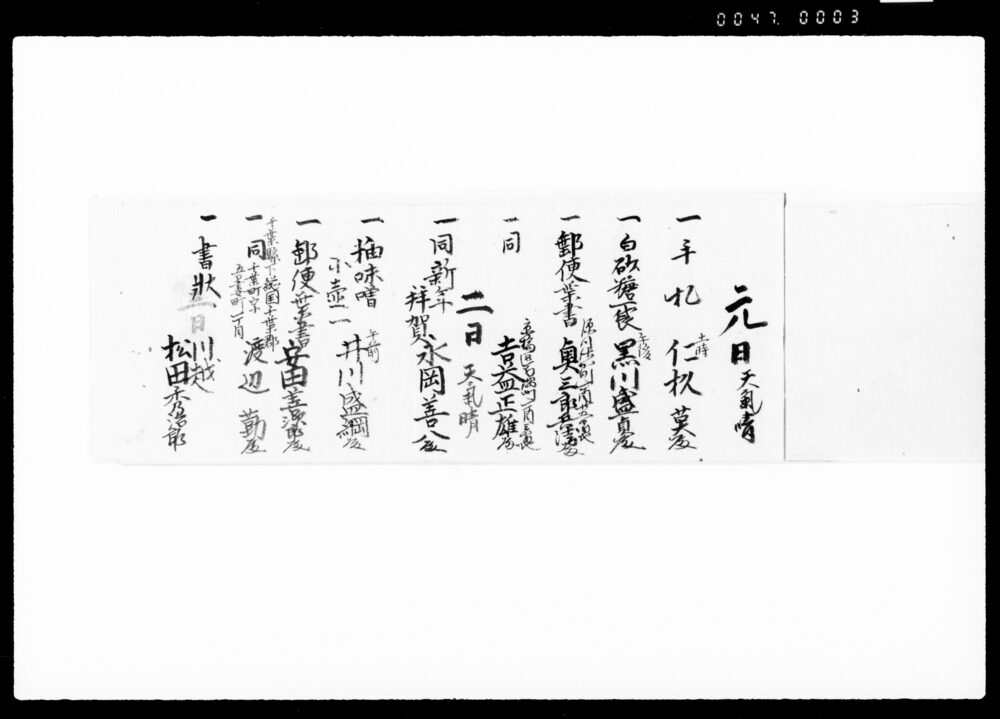 0047. 0003
元日 天氣晴
一 手札 仁杉 英殿
一 白砂糖一袋 午後 黒川盛貞殿
一 郵便葉書
一 同 吉益正雄殿
二日 天氣晴
一 同 新年
拝賀 永岡善八殿
一 柚味噌
小壺二 午前 井川盛綱殿
一 郵便葉書 安田善次郎殿
千葉縣下総国千葉郡
千葉町字
一 同 渡辺 勤殿
一 書状 川越
三日
松田秀次郎